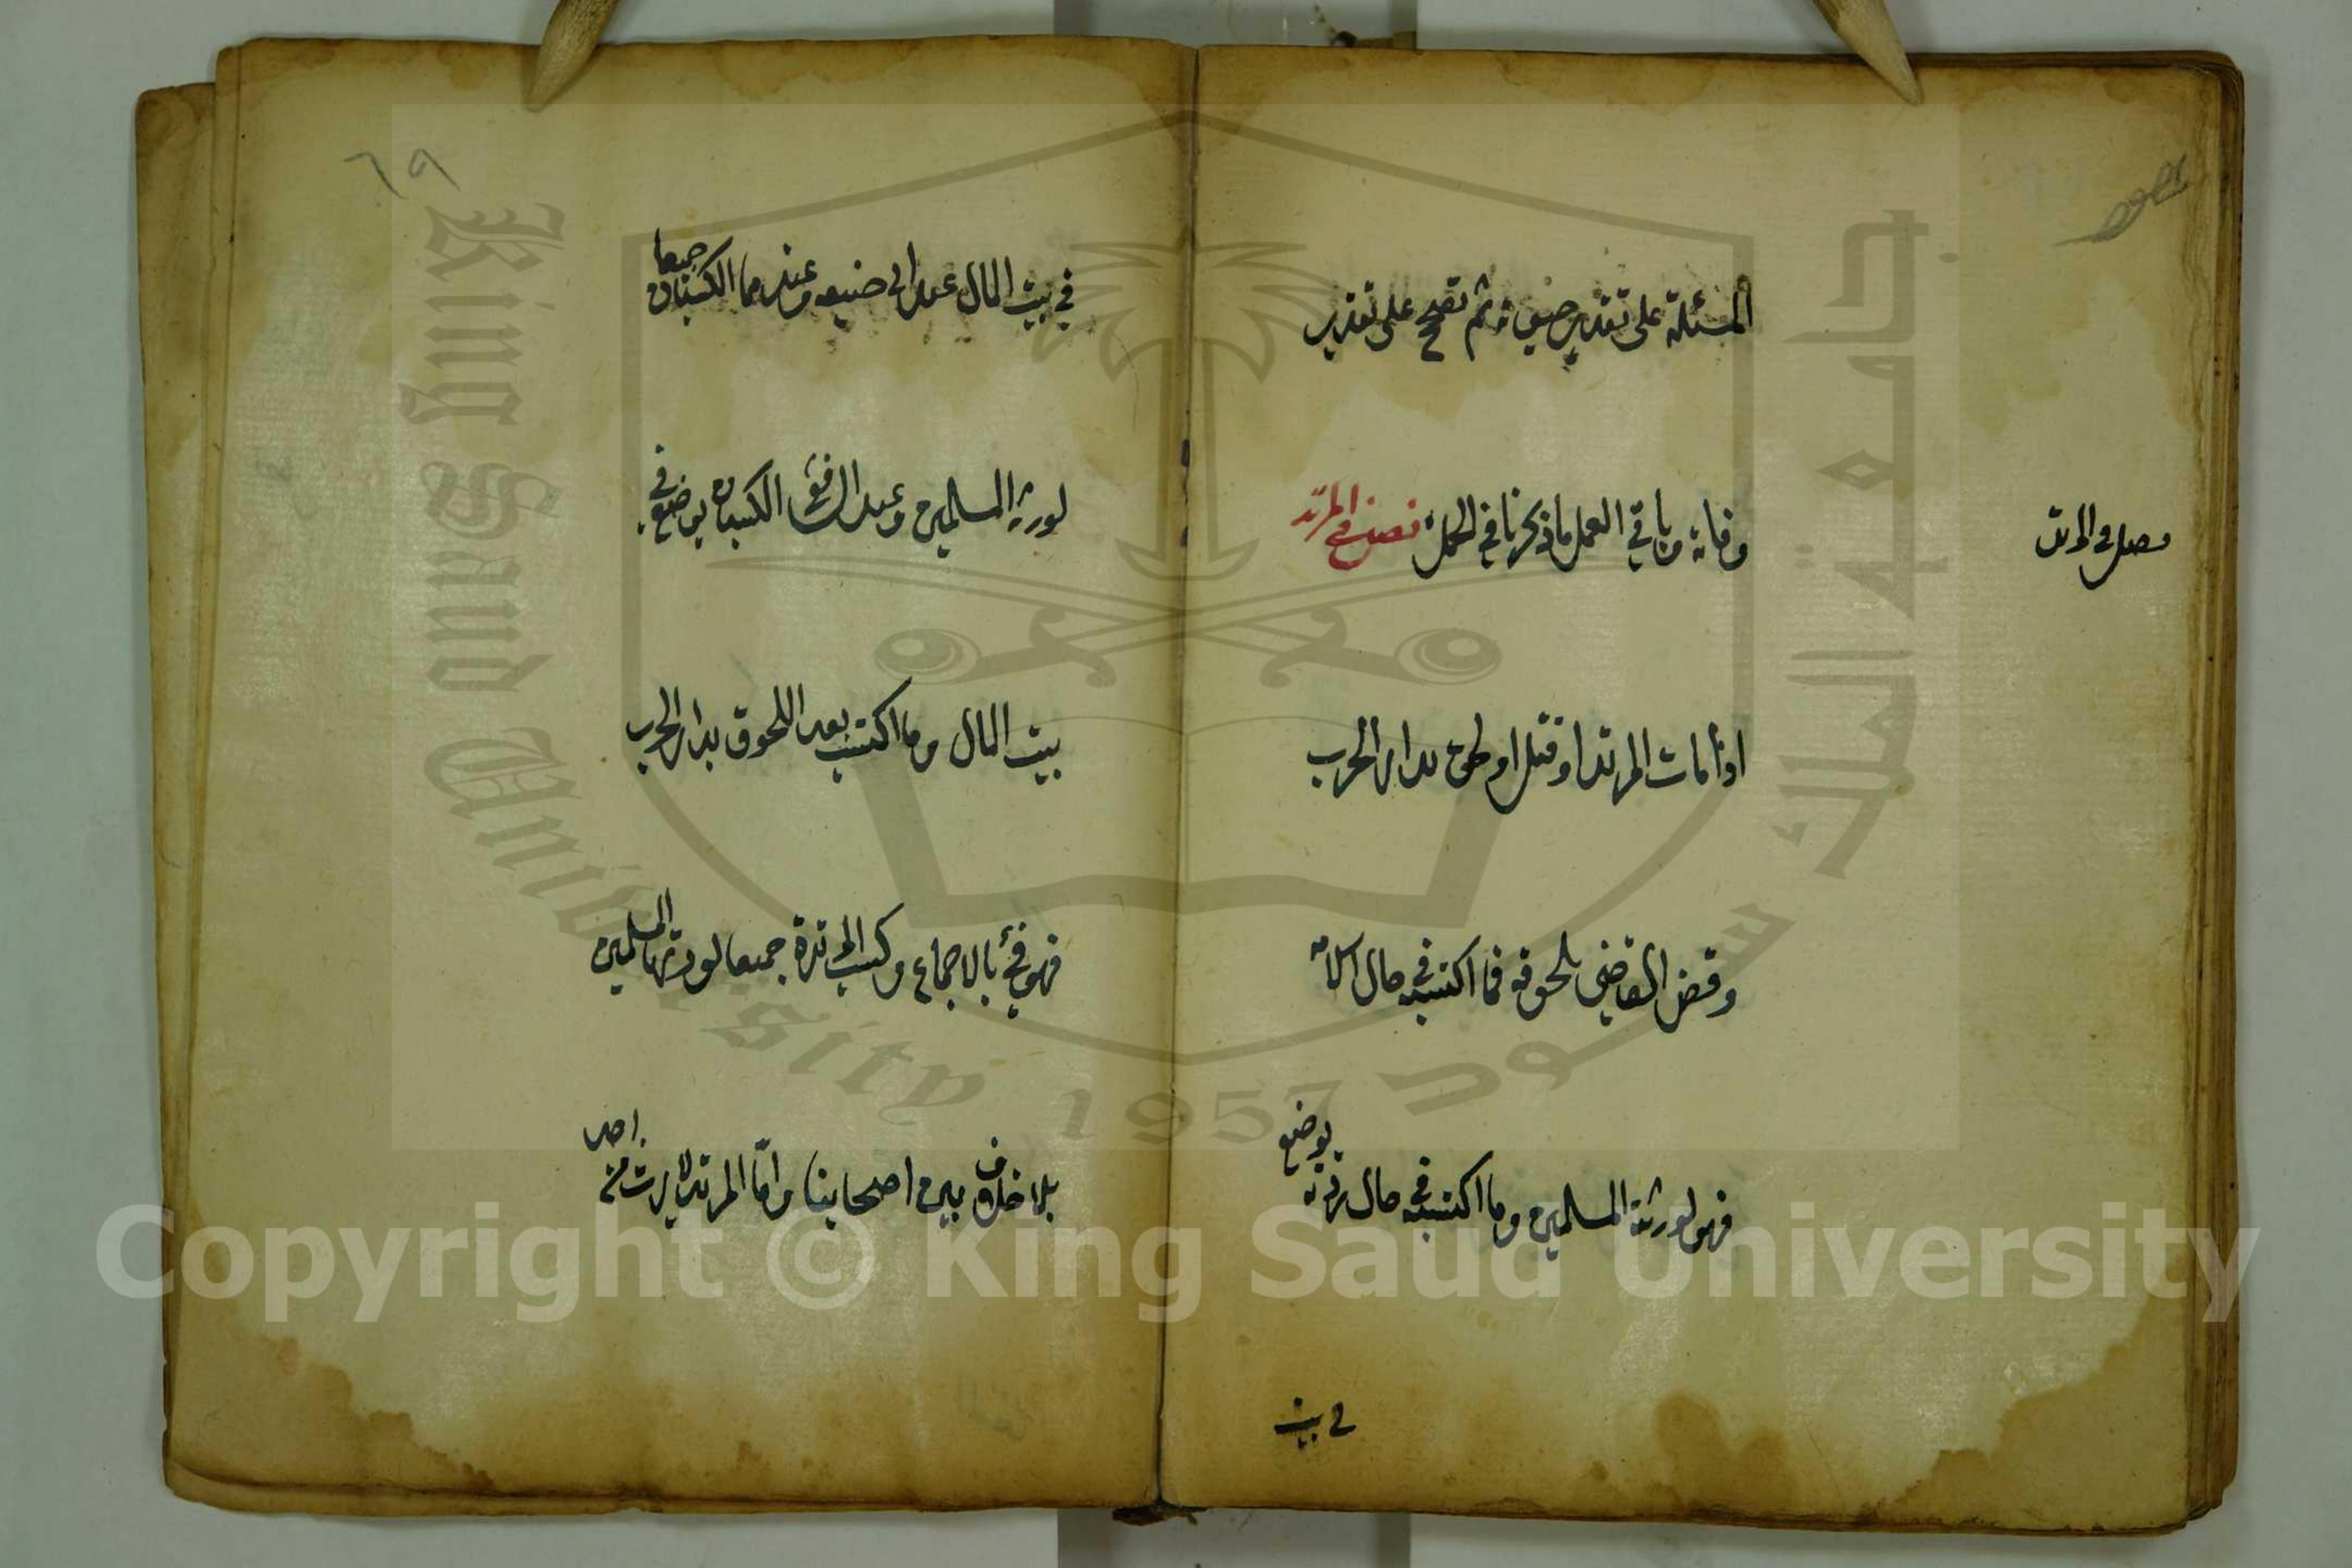 المسئلة على تقدير حيوته ثم تصحح على تقدير
وفاته وباقي العمل ما ذكرنا في الحمل فصل في المرتد
فصل في المرتد
اذا مات المرتد او قتل او لحق بدار الحرب
وقضى القاضي بلحوقه فما اكتسبه في حال اسلامه
فهو لورثته المسلمين وما اكتسبه في حال ردته يوضع
في بيت
٦٩
في بيت المال عند ابي حنيفه وعندهما الكسبان جميعا
لورثته المسلمين وعند الشافعي الكسبان يوضع في
بيت المال وما اكتسب بعد اللحوق بدار الحرب
فهو فئ بالاجماع وكسب المرتدة جميعا لورثتها المسلمين
بلا خلاف بين اصحابنا واما المرتد لا يرث من احد
King Saud University
جامعة الملك سعود
1957
Copyright © King Saud University